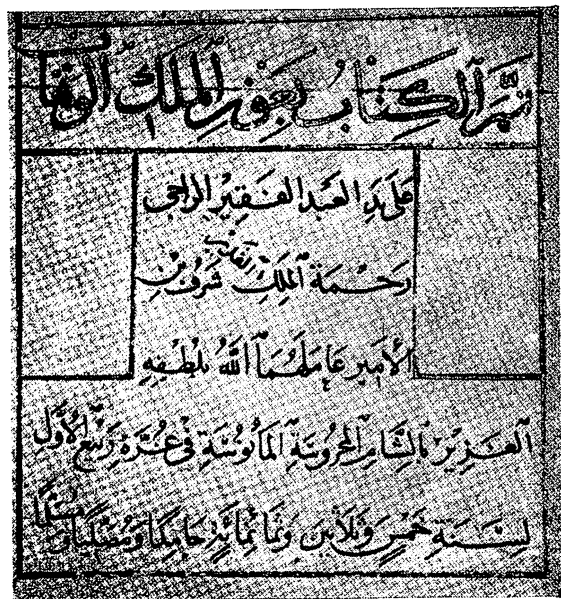 تَمَّ الكِتَابُ بِعَوْنِ المَلِكِ الوَهَّابِ
عَلَى يَدِ العَبْدِ الفَقِيْرِ الرَاجِي
رَحْمَةَ المَلِكِ شَرَف بْنِ
الأَمِيرِ عَامَلَهُمَا اللهُ بِلُطْفِهِ
العَزِيْزِ بِالشَّامِ المَحْرُوسَةِ المَأْنُوسَةِ فِي غُرَّةِ رَبِيعِ الأَوَّلِ
لِسَنَةِ خَمْسٍ وَثَلَاثِينَ وَثَمَانِمِائَةٍ حَامِدًا وَمُصَلِّيًا وَمُسَلِّمًا